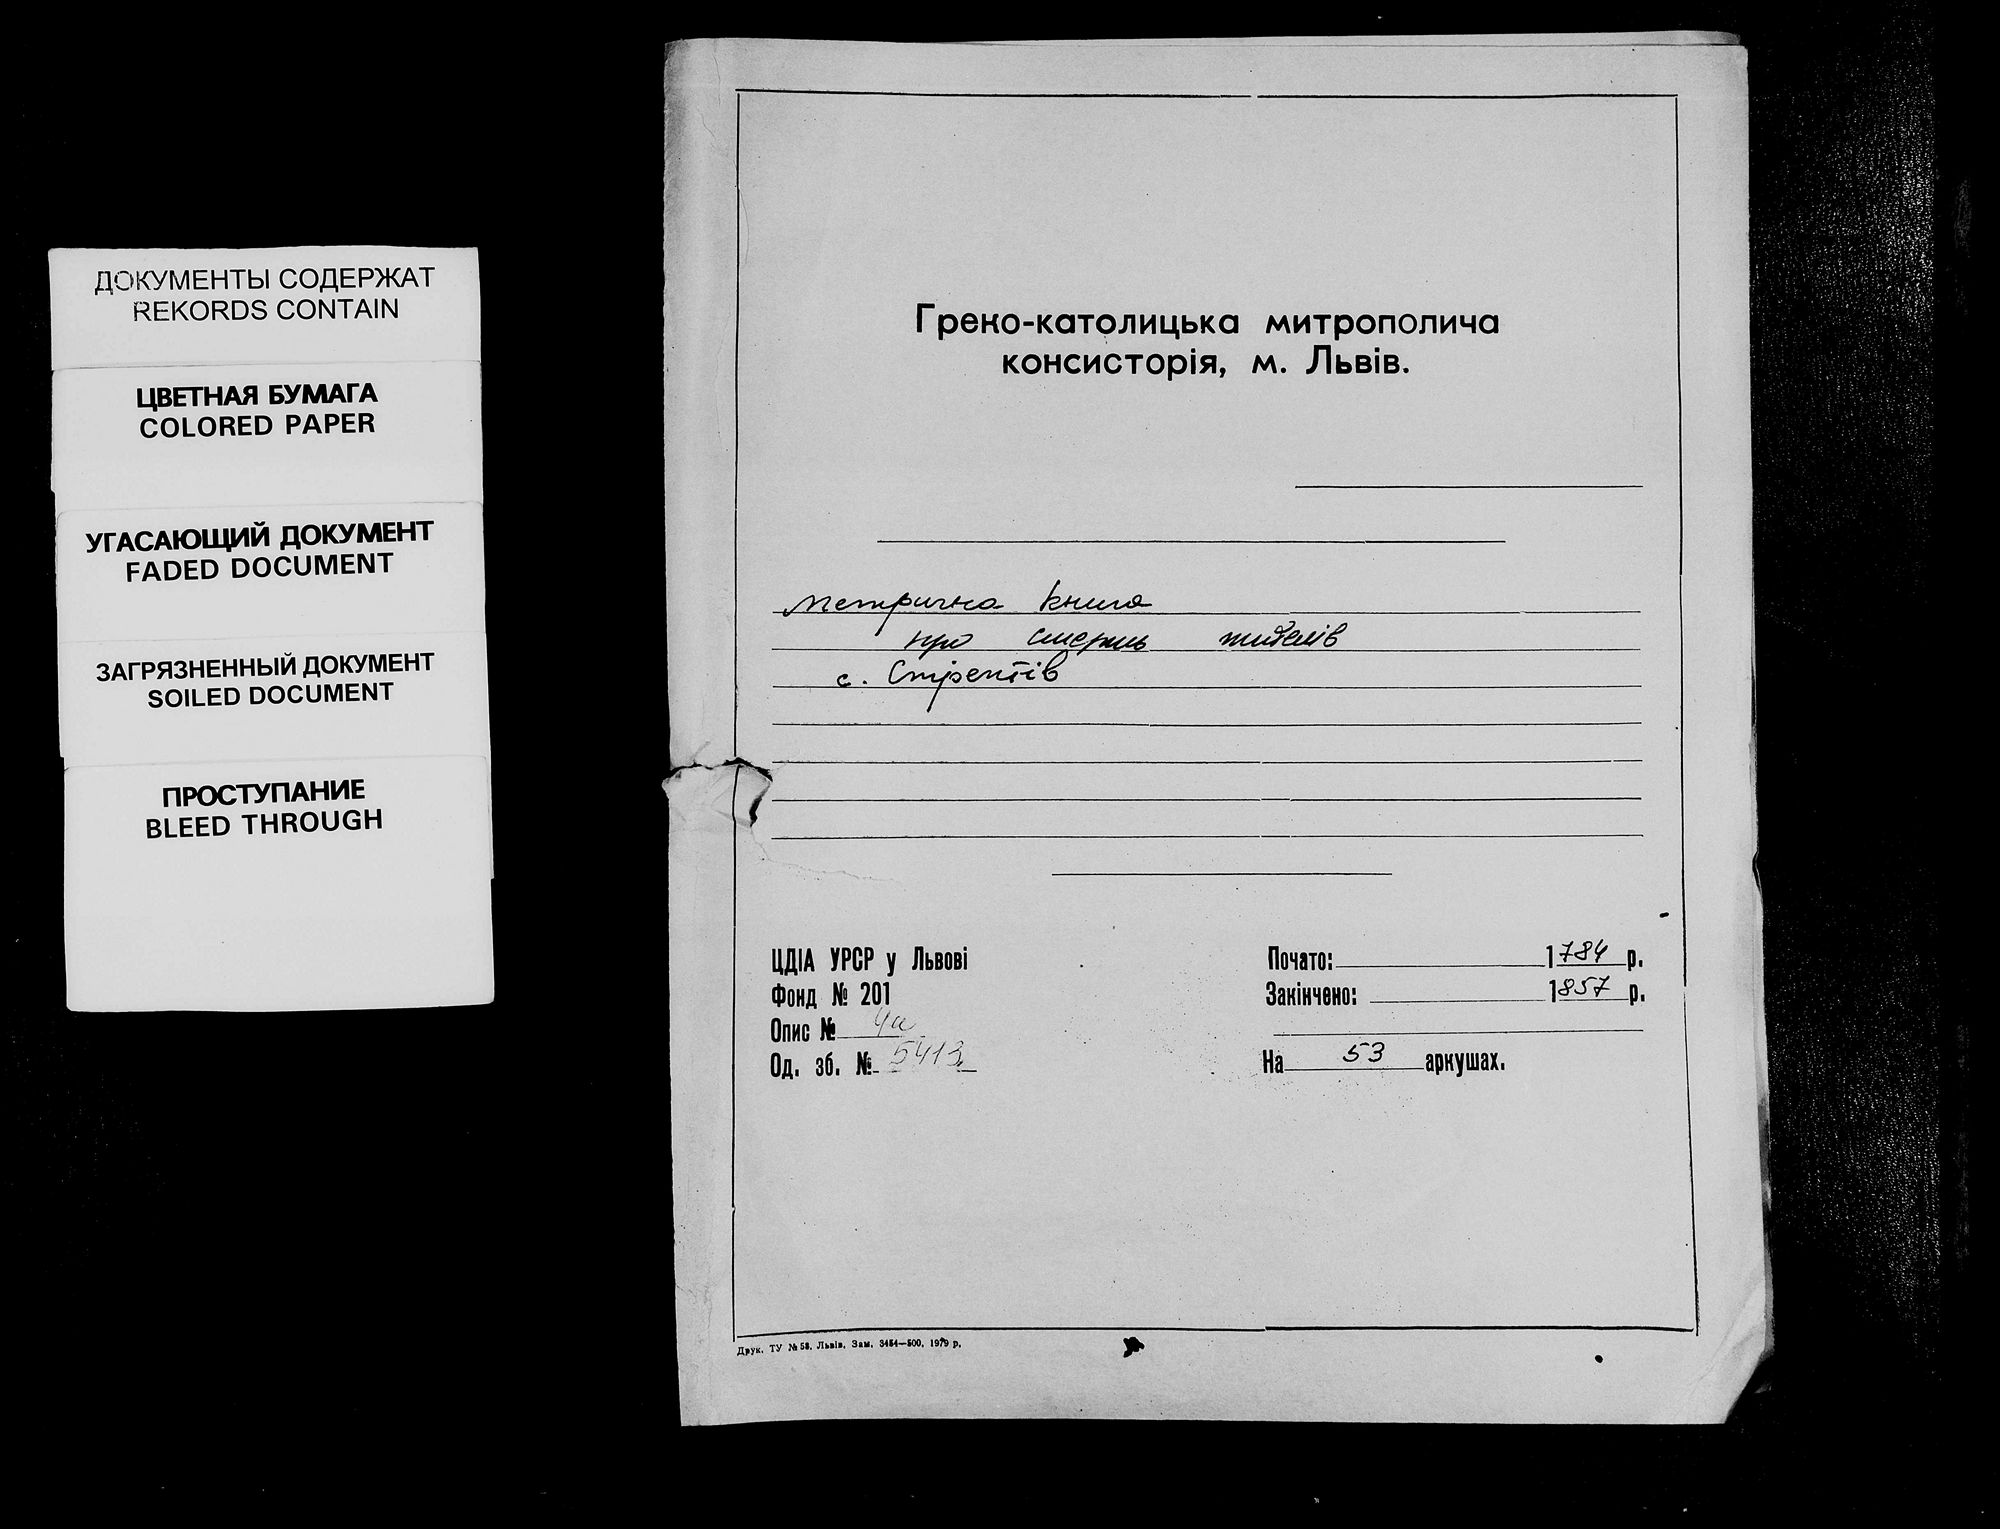 ДОКУМЕНТЫ СОДЕРЖАТ
REKORDS CONTAIN
ЦВЕТНАЯ БУМАГА
COLORED PAPER
УГАСАЮЩИЙ ДОКУМЕНТ
FADED DOCUMENT
ЗАГРЯЗНЕННЫЙ ДОКУМЕНТ
SOILED DOCUMENT
ПРОСТУПАНИЕ
BLEED THROUGH
Греко-католицька митрополича
консисторія, м. Львів.
метрична книга
про смерть жителів
с. Стрептів
ЦДІА УРСР у Львові
Фонд № 201
Опис № 4а
Од. зб. № 5413
Почато: 1784 р.
Закінчено: 1857 р.
На 53 аркушах.
Друк. ТУ № 58. Львів. Зам. 3454—500. 1979 р.